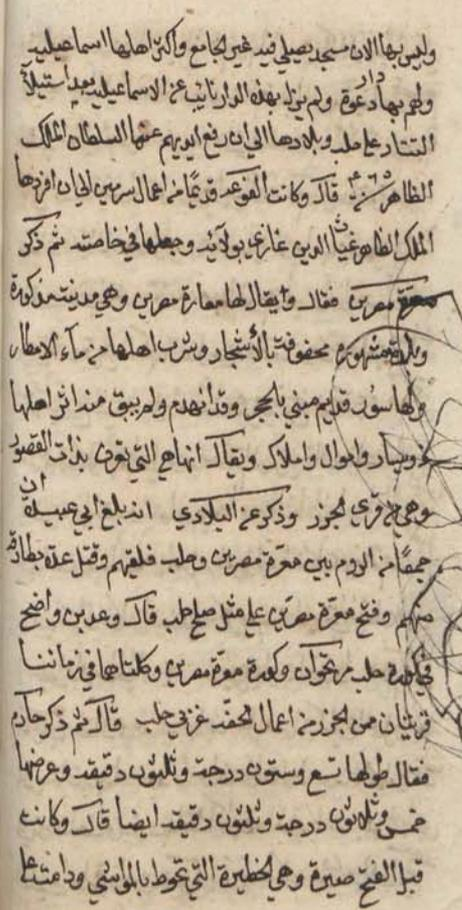 وليس بها الان مسجد يصلي فيه غير الجامع واكثر اهلها اسماعيليه
ولهم بها دار دعوة ولم يزل بهذه الدار نايب عن الاسماعيليه بعد استيلآ
التتار على حلب وبلادها الى ان رفع ايديهم عنها السلطان الملك
الظاهر سنة قال وكانت الفوعه قديمًا من اعمال سرمين الى ان افردها
الملك الظاهر غياث الدين غازي بولاية وجعلها في خاصته ثم ذكر
معرة مصرين فقال ويقال لها معارة مصرين وهي مدينة مذكورة
وبلدة مشهورة محفوفة بالأشجار وشرب اهلها من مآء الامطار
ولها سور قديم مبني بالحجر وقد انهدم ولم يبق منه اثر اهلها
ويسار واموال واملاك ويقال انها هي التي تعرف بذات القصور
وهي من قرى الجزر وذكر عن البلادري انه بلغ ابي عبيدة ان
جمعًا من الروم بين معرة مصرين وحلب فلقيهم وقتل عدة بطارقة
منهم وفتح معرة مصرين على مثل صلح حلب قال وعد بن واضح
في كورة حلب مرتحوان وكورة معرة مصرين وكلتاهما في زماننا
قريتان من الجزر من اعمال الحقه غربي حلب قال ثم ذكر حارم
فقال طولها تسع وستون درجة وثلثون دقيقه وعرضها
خمس وثلاثون درجة وثلثون دقيقه ايضا قال وكانت
قبل الفتح صيرة وهي الحظيرة التي تحوط بالمواشي ودامت على